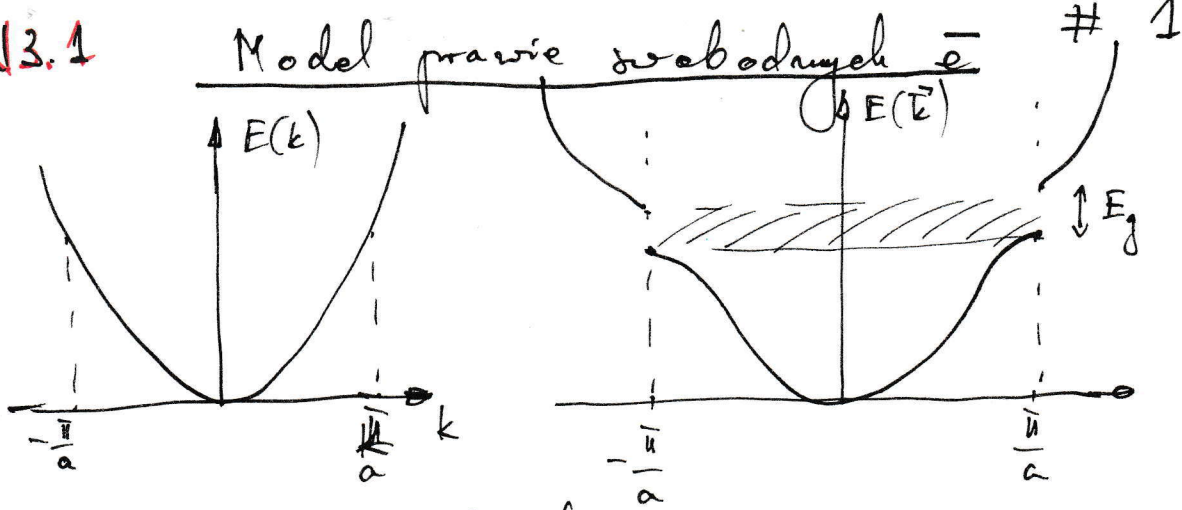 13.1 Model prawie swobodnych e̅ # 1
E(k)
E(k⃗)
E_g
-π/a
π/a
k
-π/a
π/a